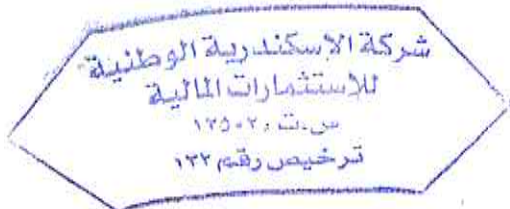 شركة الإسكندرية الوطنية
للاستثمارات المالية
س.ت ١٣٥٠٢٠
ترخيص رقم ١٣٢